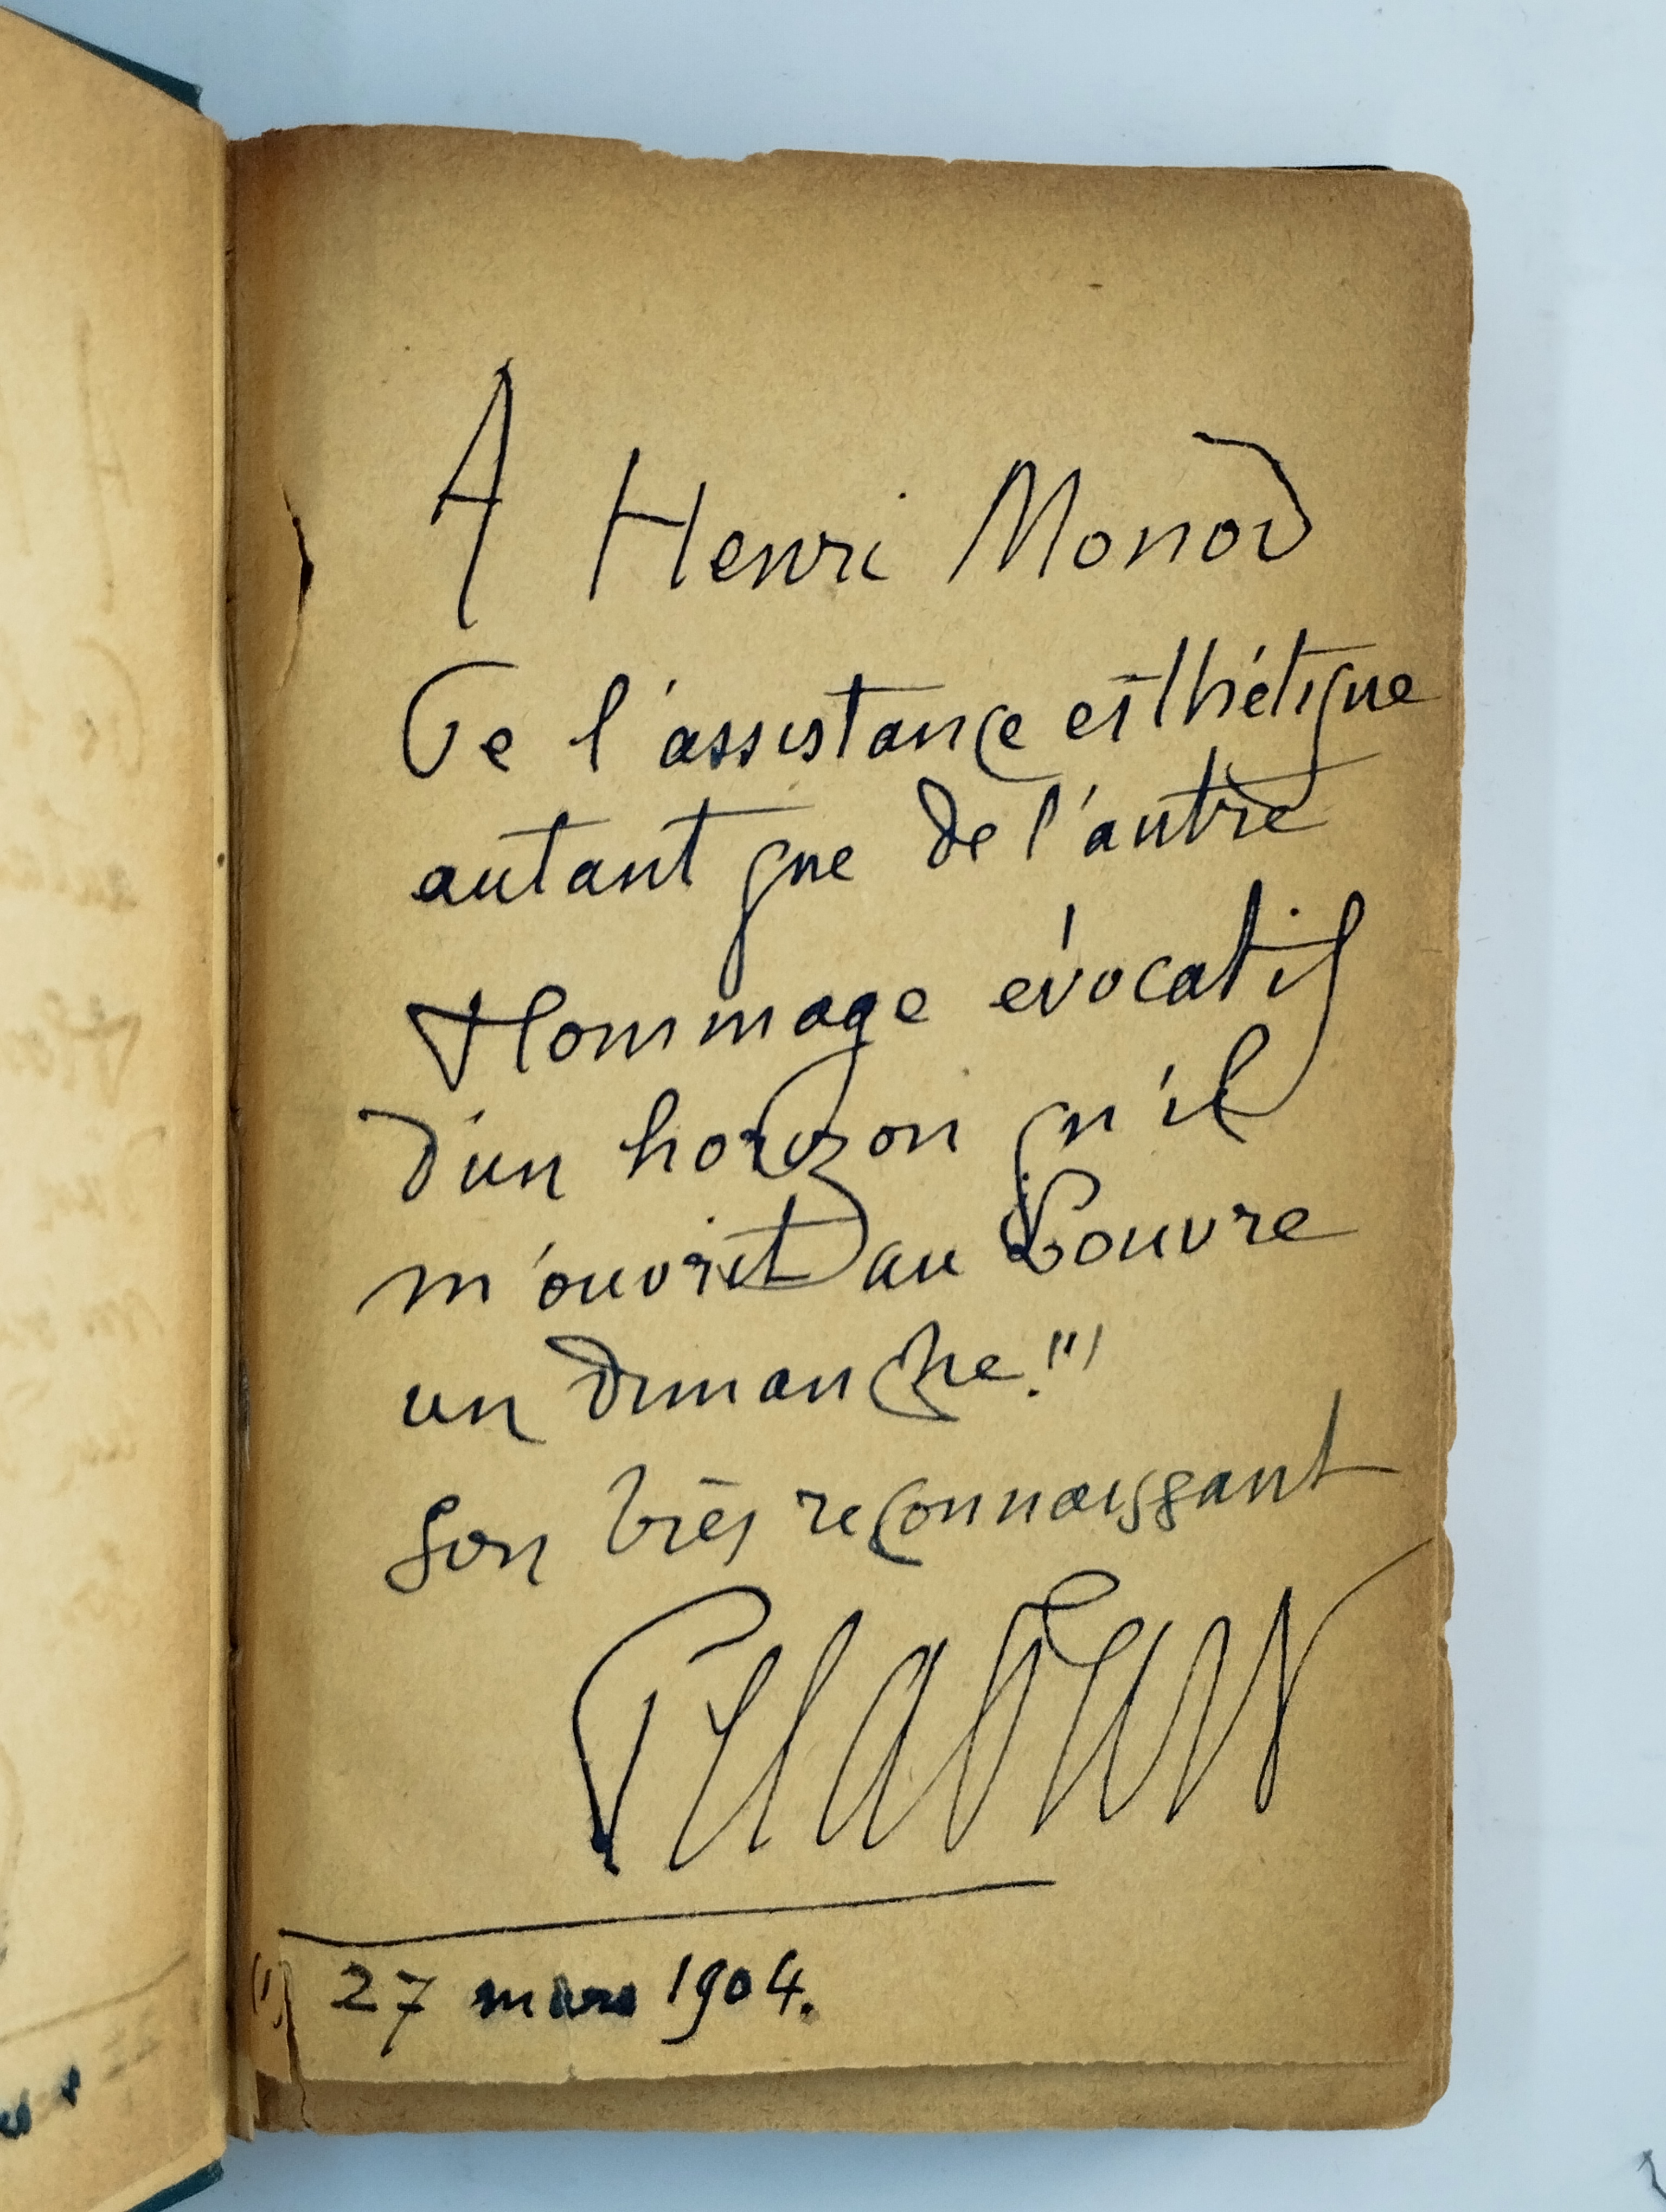 A Henri Monod
De l'assistance esthétique
autant que de l'autre
Hommage évocatif
d'un horizon qu'il
m'ouvrit au Louvre
un dimanche.(1)
Son très reconnaissant
Peladan
(1) 27 mars 1904.